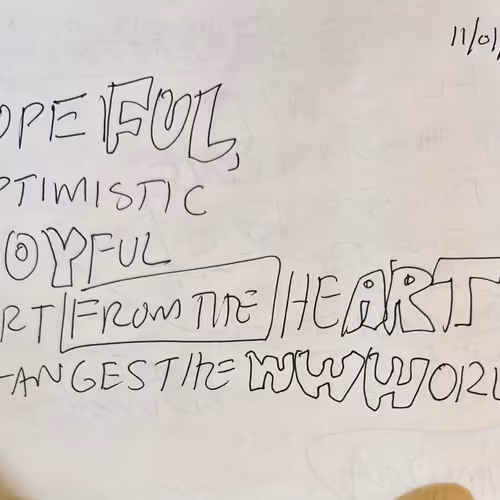 11/01/
OPEFUL,
PTIMISTIC
OYFUL
RT FROM THE HEART
ANGES THE WWWORL